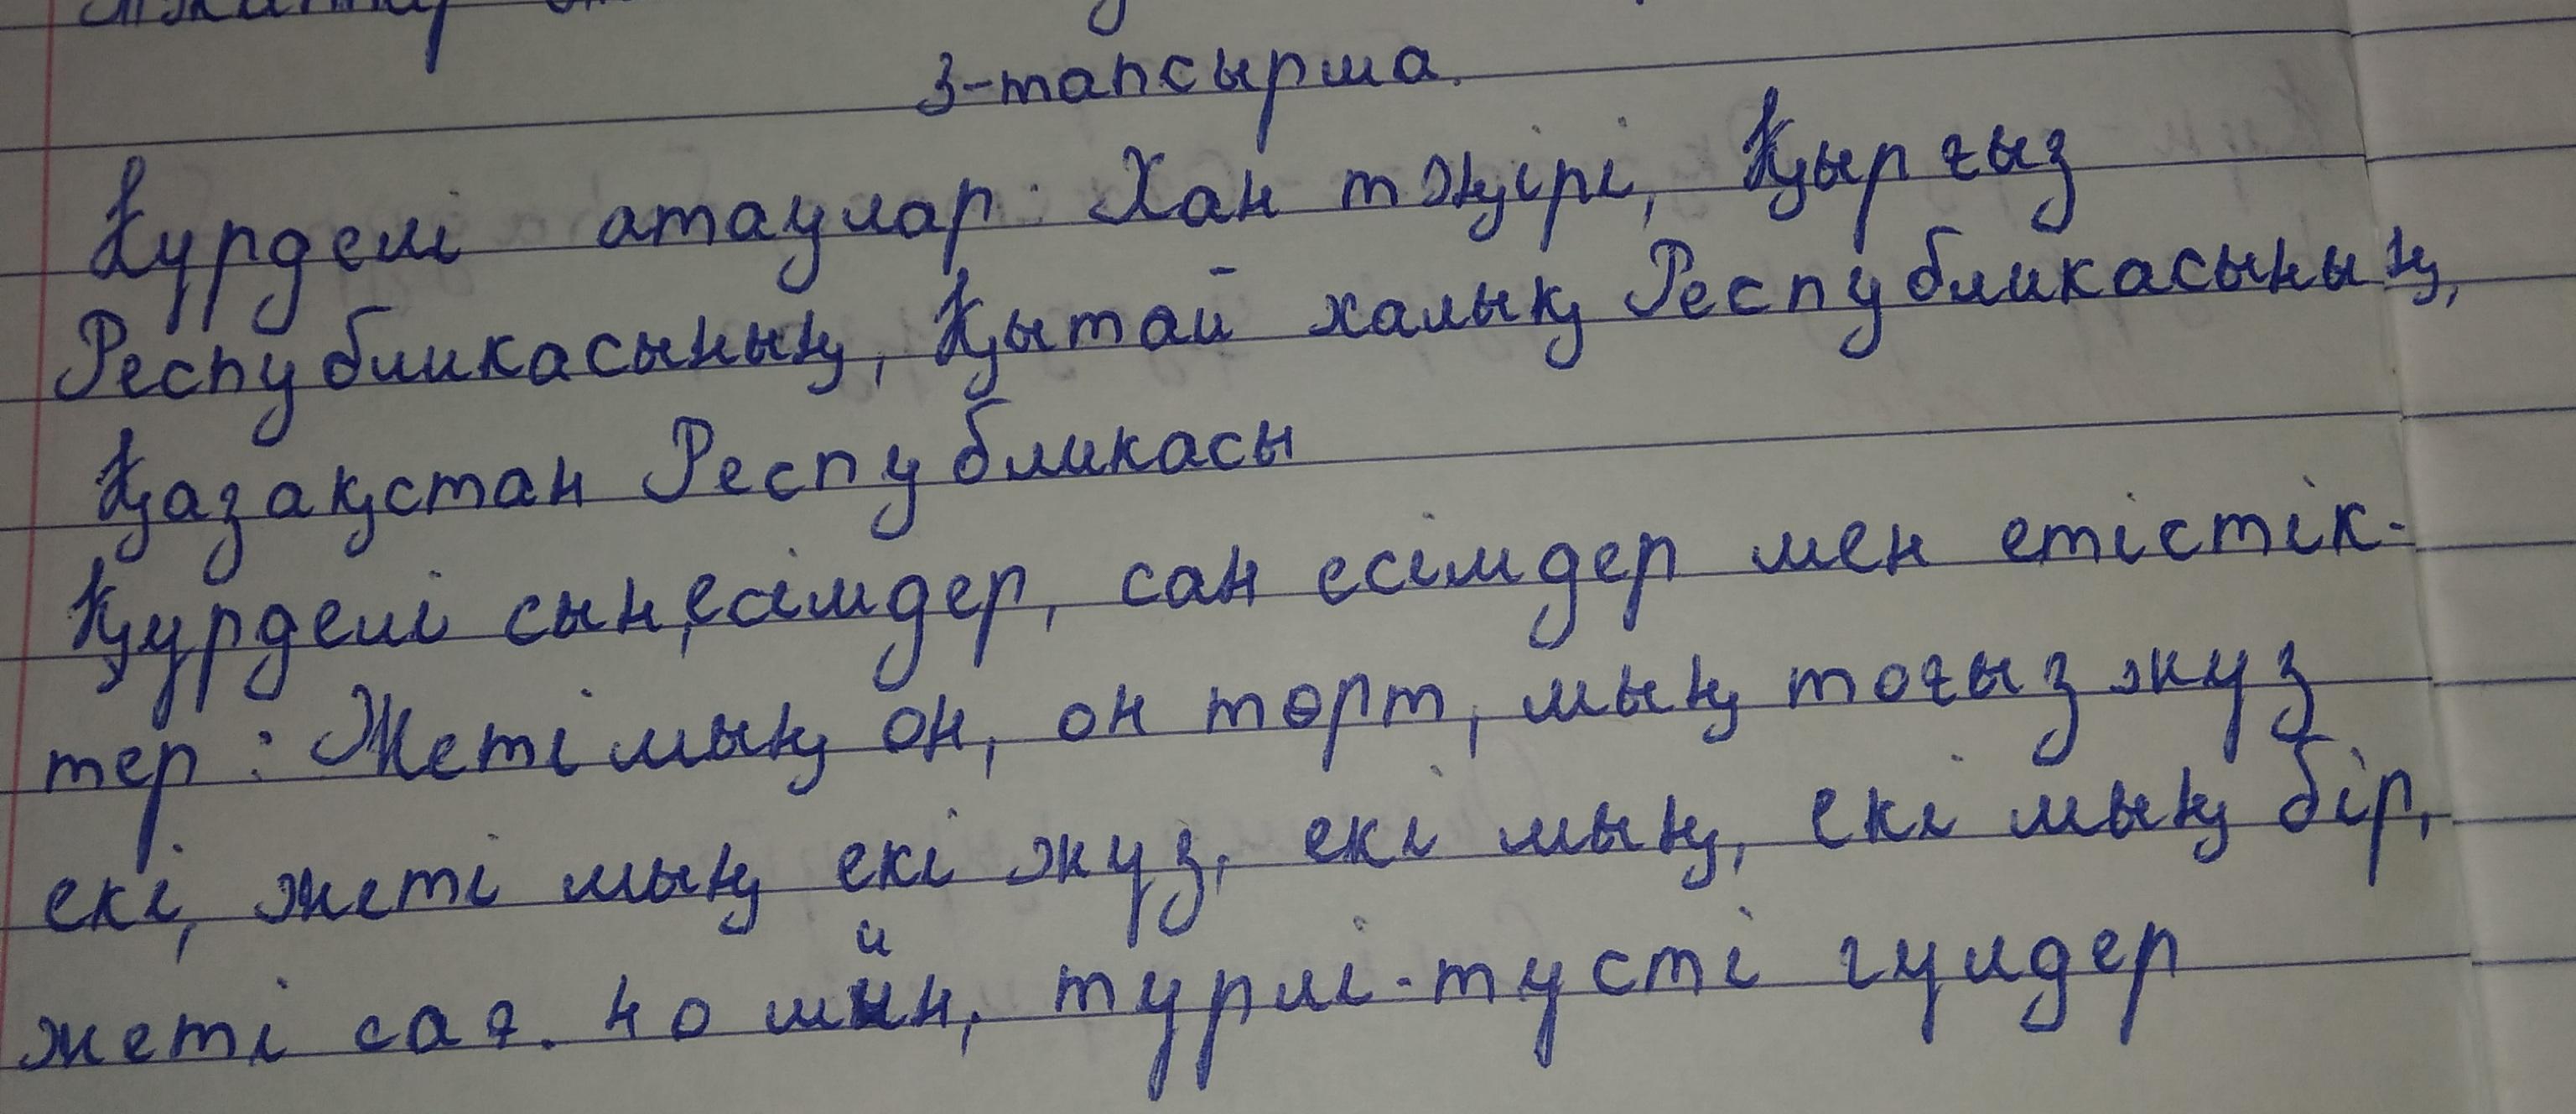 3-тапсырма.
Күрделі атаулар: Хан тәңірі, Қырғыз
Республикасының, Қытай халық Республикасының,
Қазақстан Республикасы
Құрделі сын есімдер, сан есімдер мен етістік-
тер: Жеті мың он, он төрт, мың тоғыз жүз
екі, жеті мың екі жүз, екі мың, екі мың бір,
жеті сағ. 40 мин, түрлі-түсті гүлдер